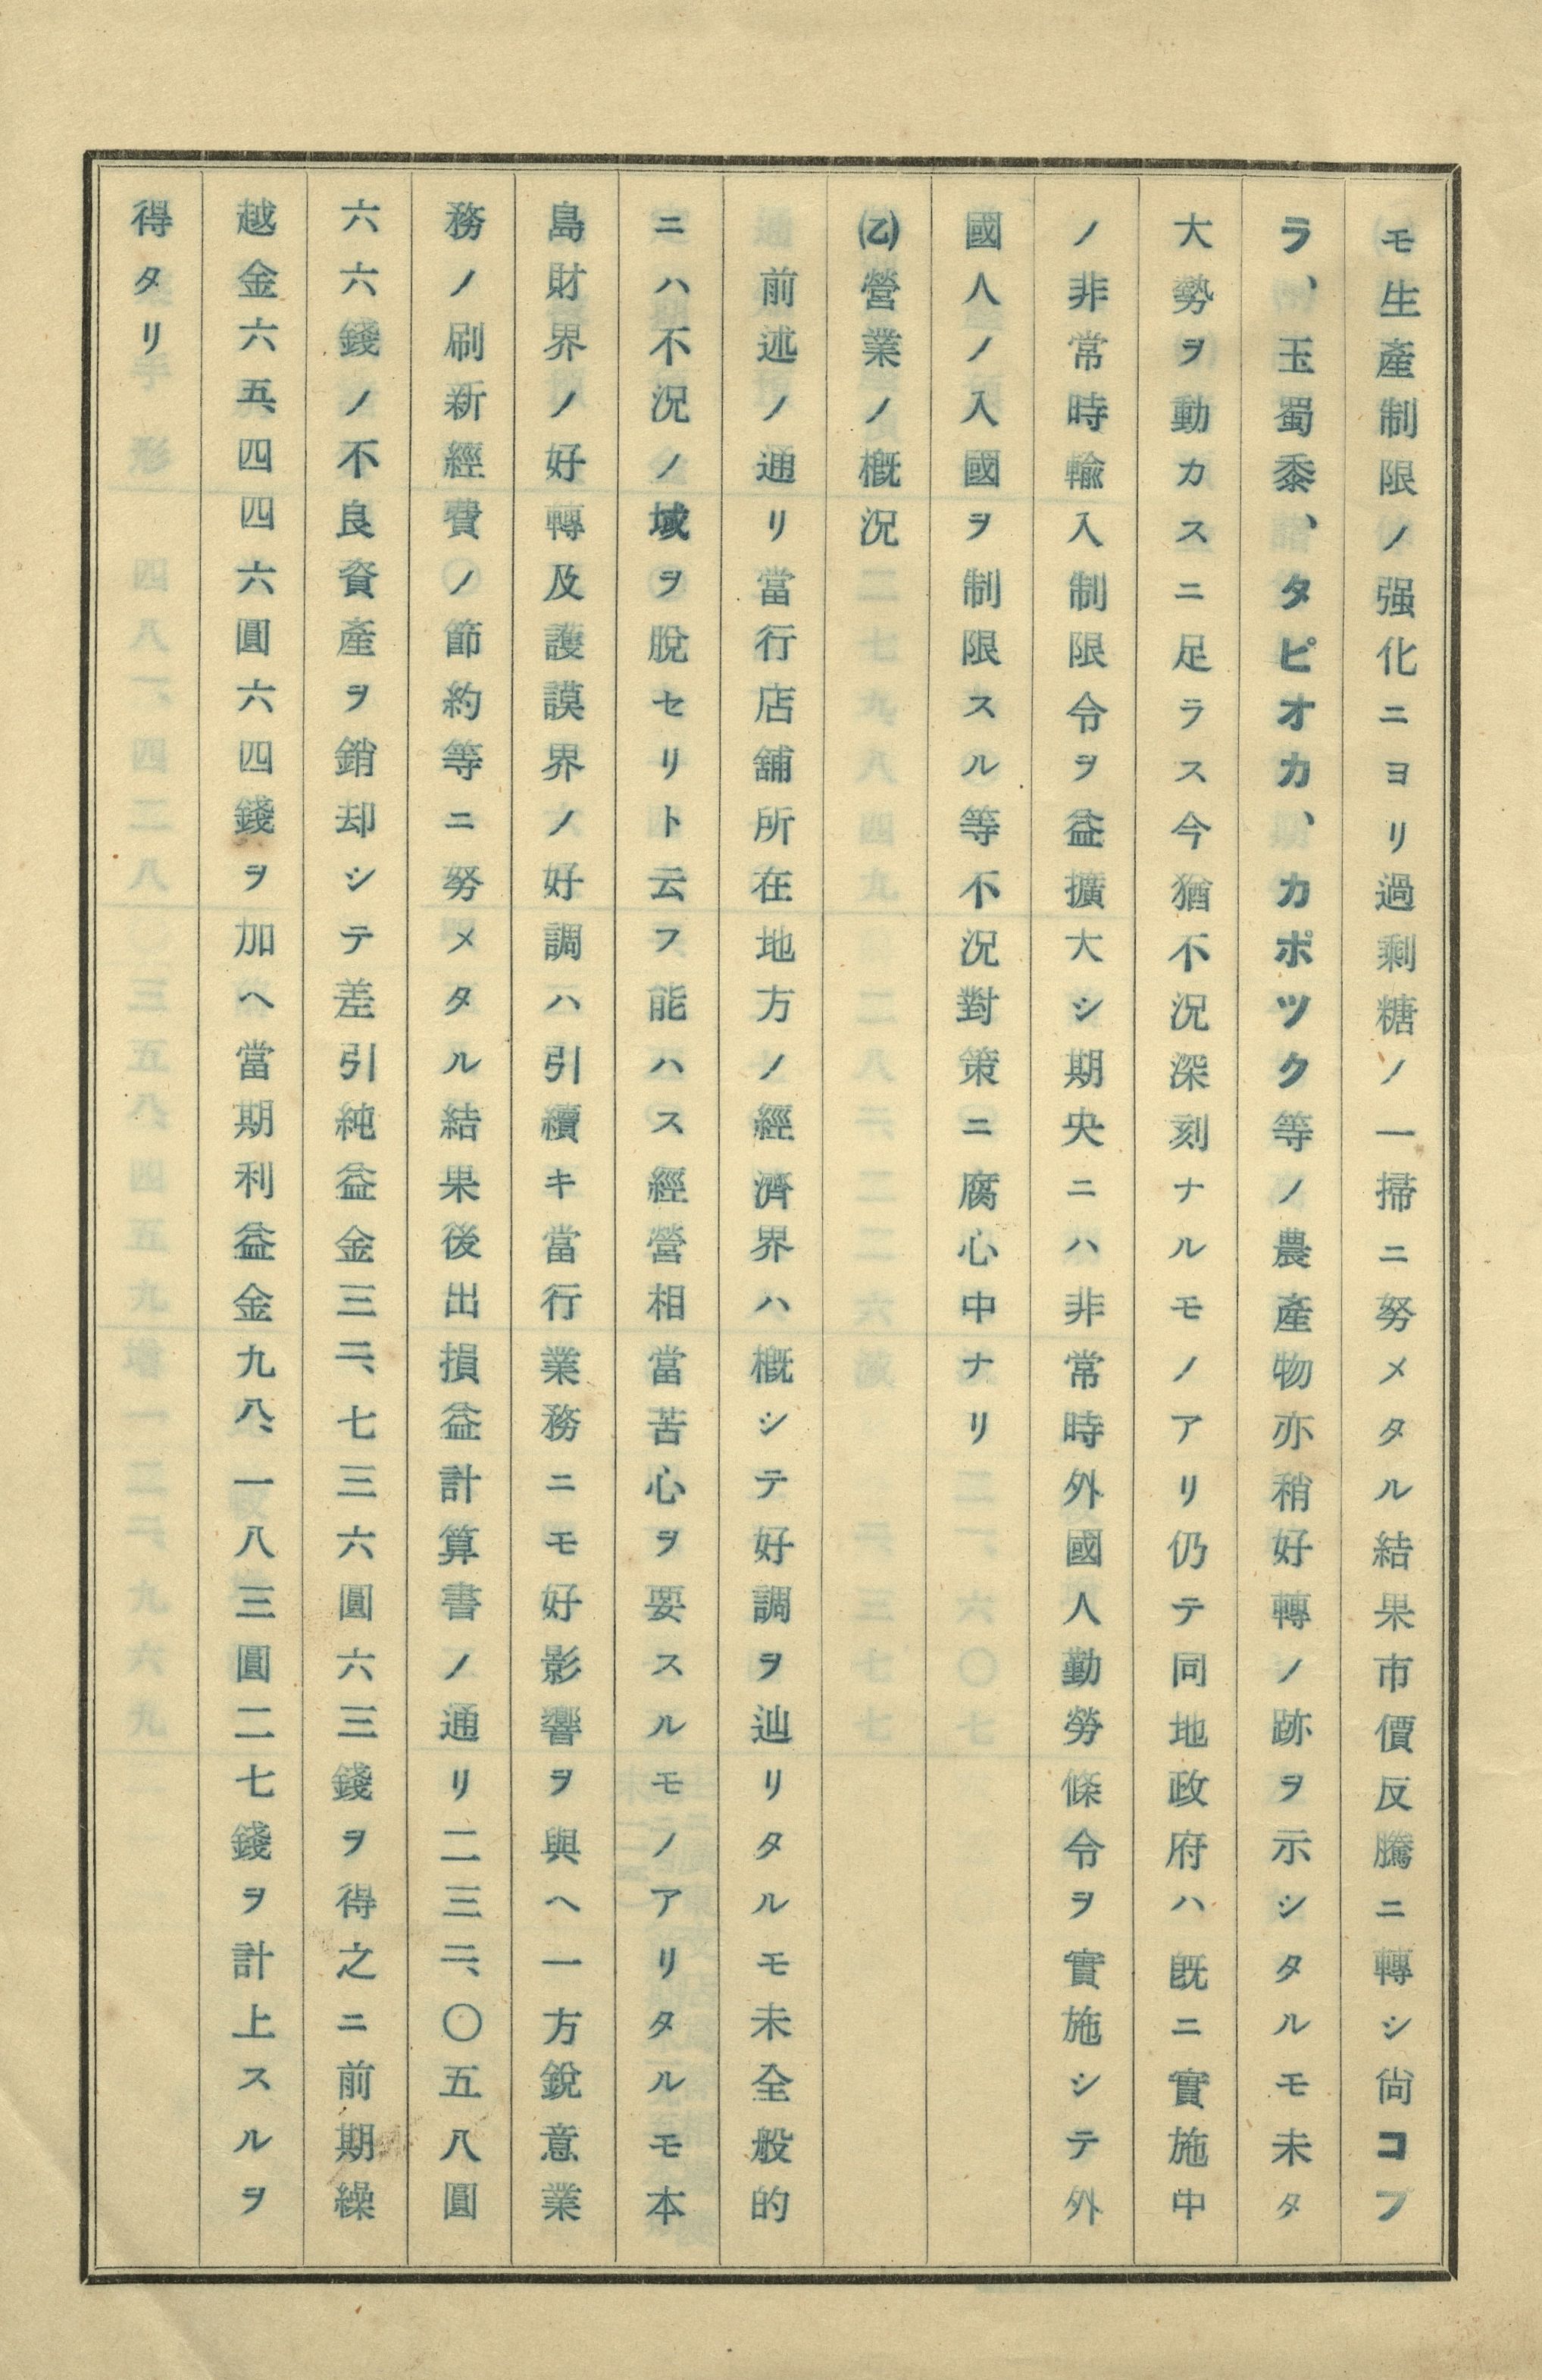 モ生產制限ノ强化ニヨリ過剩糖ノ一掃ニ努メタル結果市價反騰ニ轉シ尙コフ
ラ、玉蜀黍、タピオカ、カポツク等ノ農產物亦稍好轉ノ跡ヲ示シタルモ未タ
大勢ヲ動カスニ足ラス今猶不況深刻ナルモノアリ仍テ同地政府ハ既ニ實施中
ノ非常時輸入制限令ヲ益擴大シ期央ニハ非常時外國人勤勞條令ヲ實施シテ外
國人ノ入國ヲ制限スル等不況對策ニ腐心中ナリ
(乙)營業ノ槪況
前述ノ通リ當行店舖所在地方ノ經濟界ハ槪シテ好調ヲ辿リタルモ未全般的
ニハ不況ノ域ヲ脫セリト云フ能ハス經營相當苦心ヲ要スルモノアリタルモ本
島財界ノ好轉及護謨界ノ好調ハ引續キ當行業務ニモ好影響ヲ與ヘ一方銳意業
務ノ刷新經費ノ節約等ニ努メタル結果後出損益計算書ノ通リ二三二、〇五八圓
六六錢ノ不良資產ヲ銷却シテ差引純益金三二、七三六圓六三錢ヲ得之ニ前期繰
越金六五、四四六圓六四錢ヲ加ヘ當期利益金九八、一八三圓二七錢ヲ計上スルヲ
得タリ